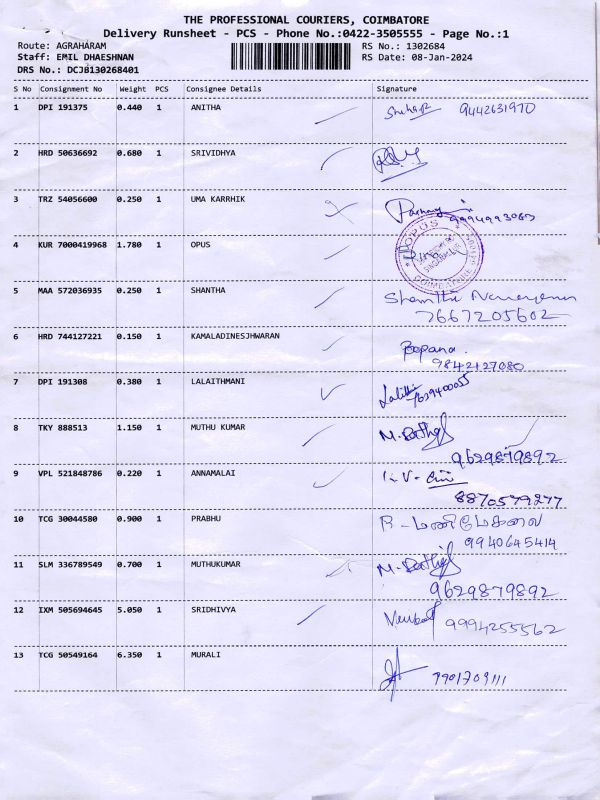 THE PROFESSIONAL COURIERS, COIMBATORE
Delivery Runsheet - PCS - Phone No.:0422-3505555 - Page No.:1
Route: AGRAHARAM
RS No.: 1302684
Staff: EMIL DHAESHNAN
RS Date: 08-Jan-2024
DRS No.: DCJB130268401
S No Consignment No Weight PCS Consignee Details Signature
1 DPI 191375 0.440 1 ANITHA 9442631970
2 HRD 50636692 0.680 1 SRIVIDHYA
3 TRZ 54056600 0.250 1 UMA KARRHIK
9994993067
4 KUR 7000419968 1.780 1 OPUS
OPUS
COIMBATORE
5 MAA 572036935 0.250 1 SHANTHA
7667205602
6 HRD 744127221 0.150 1 KAMALADINESJHWARAN
9842127080
7 DPI 191308 0.380 1 LALAITHMANI Lalitha
8 TKY 888513 1.150 1 MUTHU KUMAR
9629879892
9 VPL 521848786 0.220 1 ANNAMALAI
8870579277
10 TCG 30044580 0.900 1 PRABHU R - மணிமேகலை
9940645414
11 SLM 336789549 0.700 1 MUTHUKUMAR
9629879892
12 IXM 505694645 5.050 1 SRIDHIVYA Venkat 9994255562
13 TCG 50549164 6.350 1 MURALI